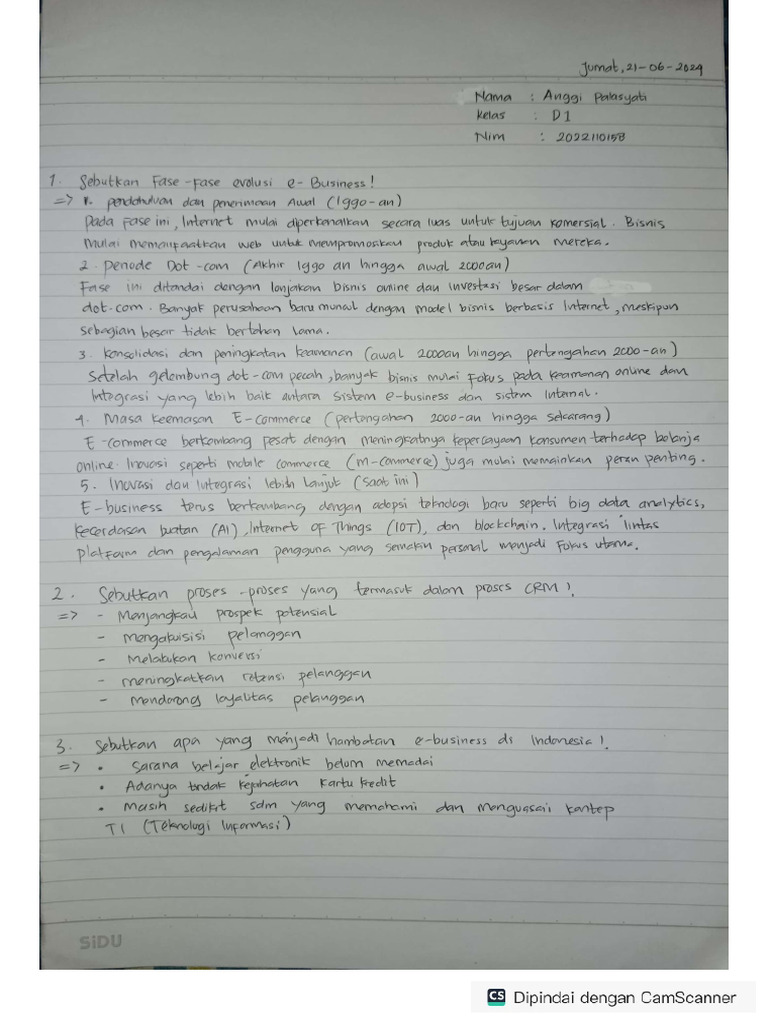 Jumat, 21-06-2024
Nama : Anggi Palasyati
Kelas : D1
Nim : 2022110158
1. Sebutkan Fase-Fase evolusi e-Business!
=> 1. pendahuluan dan penerimaan Awal (1990-an)
Pada fase ini, Internet mulai diperkenalkan secara luas untuk tujuan komersial. Bisnis
Mulai memanfaatkan web untuk mempromosikan produk atau layanan mereka.
2. Periode Dot-com (Akhir 1990 an hingga awal 2000an)
Fase ini ditandai dengan lonjakan bisnis online dan Investasi besar dalam
dot.com. Banyak perusahaan baru muncul dengan model bisnis berbasis Internet, meskipun
sebagian besar tidak bertahan lama.
3. Konsolidasi dan peningkatan keamanan (awal 2000an hingga pertengahan 2000-an)
Setelah gelembung dot-com pecah, banyak bisnis mulai Fokus pada keamanan online dan
Integrasi yang lebih baik antara sistem e-business dan sistem Internal.
4. Masa Keemasan E-Commerce (pertengahan 2000-an hingga sekarang)
E-commerce berkembang pesat dengan meningkatnya kepercayaan konsumen terhadap belanja
online. Inovasi seperti mobile commerce (m-commerce) juga mulai memainkan peran penting.
5. Inovasi dan Integrasi lebih Lanjut (saat ini)
E-business terus berkembang dengan adopsi teknologi baru seperti big data analytics,
Kecerdasan buatan (AI), Internet of Things (IOT), dan blockchain. Integrasi lintas
platform dan pengalaman pengguna yang semakin personal menjadi Fokus utama.
2. Sebutkan proses-proses yang termasuk dalam proses CRM!
=> - Menjangkau prospek potensial
- Mengakuisisi pelanggan
- Melakukan konversi
- meningkatkan retensi pelanggan
- Mendorong loyalitas pelanggan
3. Sebutkan apa yang menjadi hambatan e-business di Indonesia!
=> • Sarana belajar elektronik belum memadai
• Adanya tindak kejahatan kartu kredit
• Masih sedikit sdm yang memahami dan menguasai kontep
TI (Teknologi Informasi)
SiDU
CS Dipindai dengan CamScanner